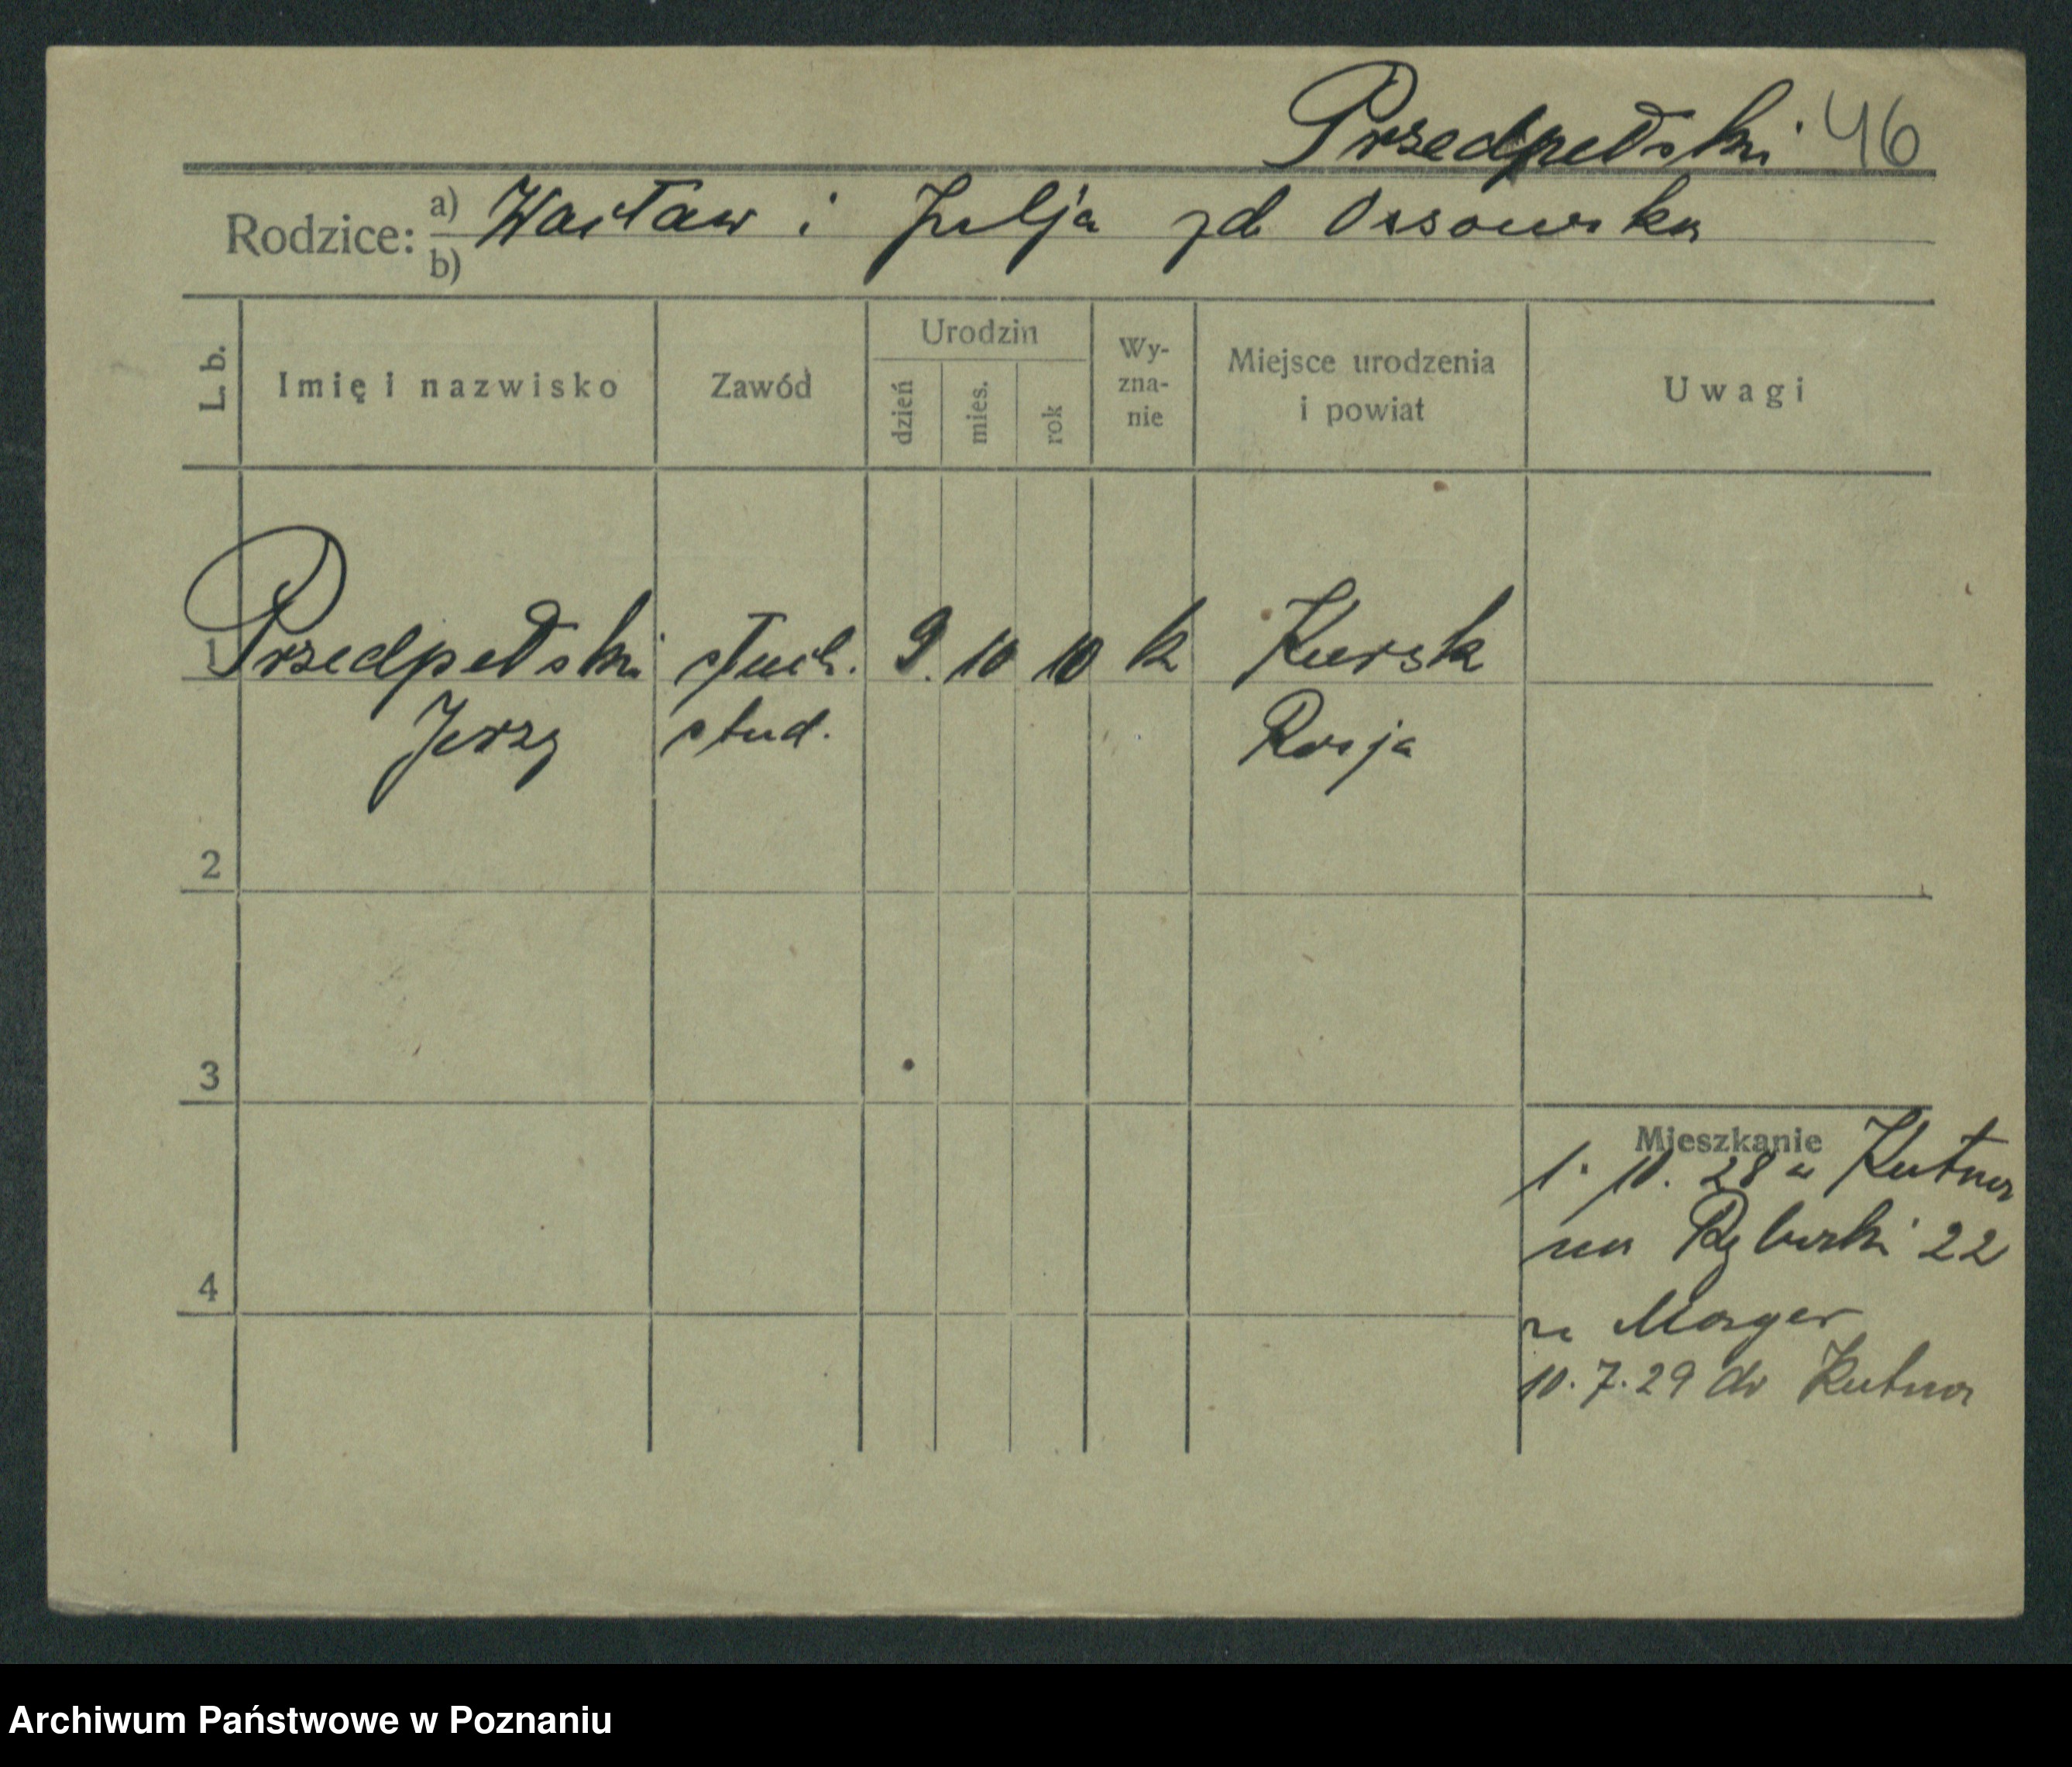 Przedpełski 46
Rodzice: a) Wacław i Julja zd Ossowska
b)
L. b. Imię i nazwisko Zawód Urodzin dzień mies. rok Wy-zna-nie Miejsce urodzenia i powiat Uwagi
1 Przedpełski słuch. 9. 10 10 k Kursk
Jerzy stud. Rosja
2
3
4
Mieszkanie
1. 10. 28 z Kutna
22
Morger
10. 7. 29 do Kutna
Archiwum Państwowe w Poznaniu